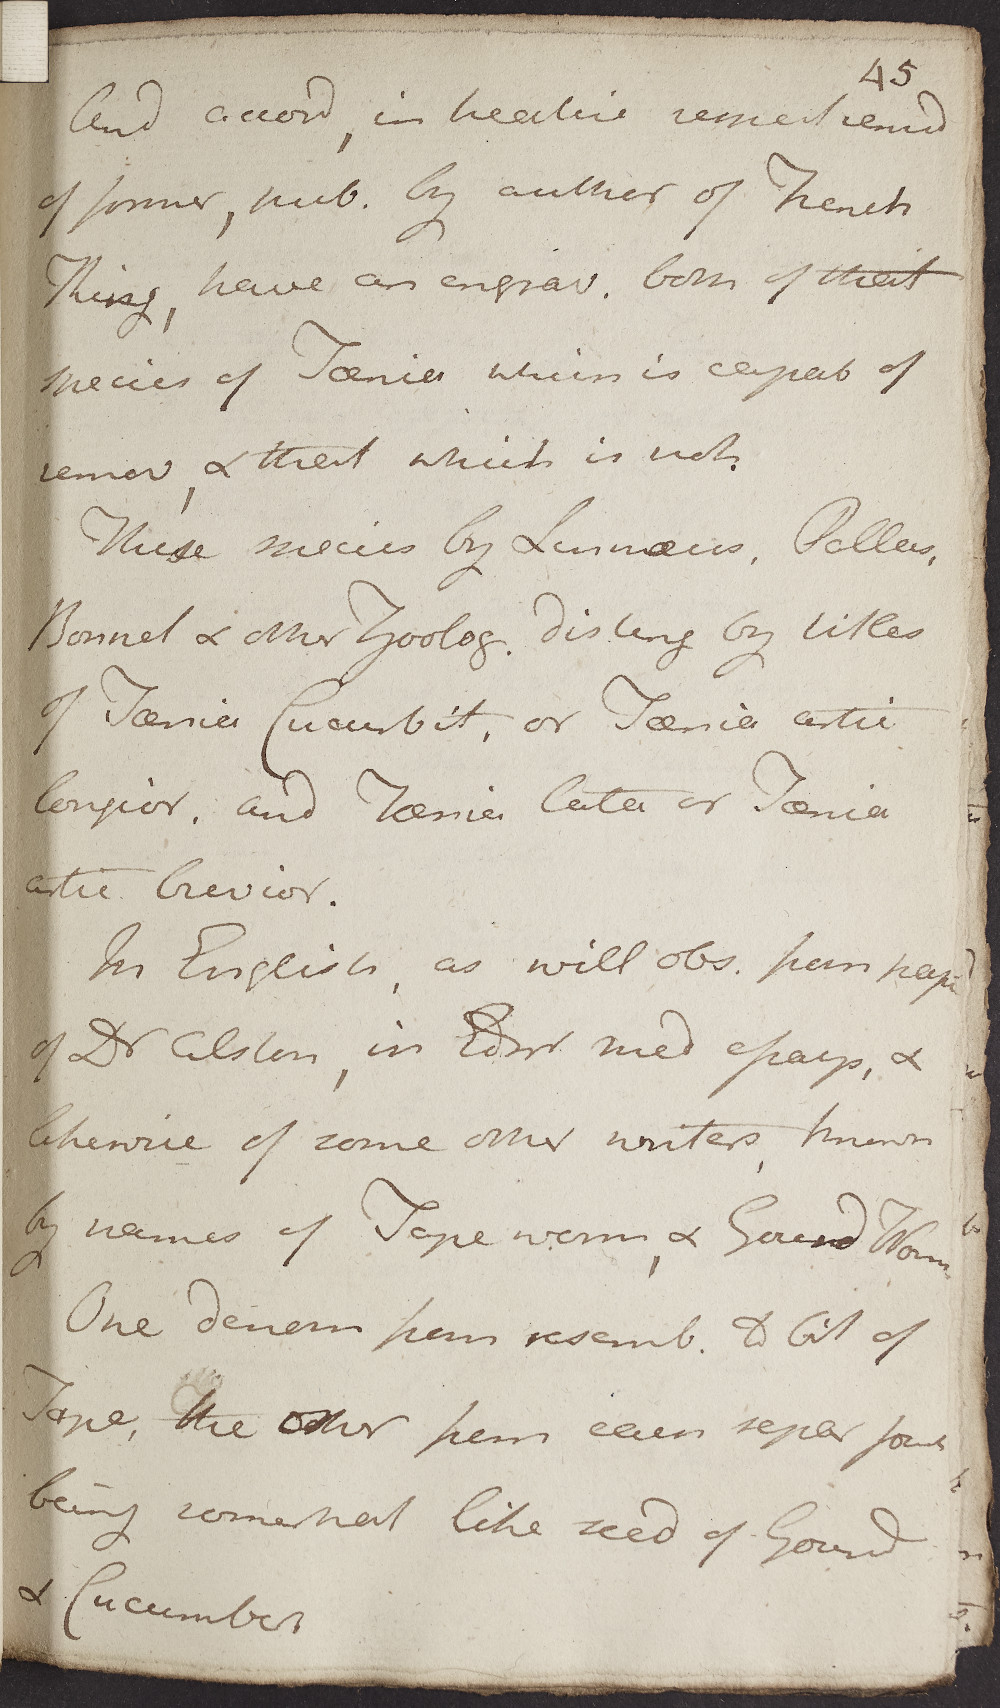 45
And accord, in treatise respect remed
of former, pub. by author of French
King, have an engrav. both of that
species of Tænia which is capab of
remov, & that which is not.
These species by Linnæus, Pallas,
Bonnet & other Zoolog. disting by titles
of Tænia Cucurbit, or Tænia artic
longior, and Tænia lata or Tænia
artic brevior.
In English, as will obs. from pap
of Dr Alston, in Edinr med essays, &
likewise of some other writers, known
by names of Tape worm, & Gourd Worm
One denom from resemb. to bit of
Tape, the other from each separ joint
being somewhat like seed of Gourd
& Cucumber